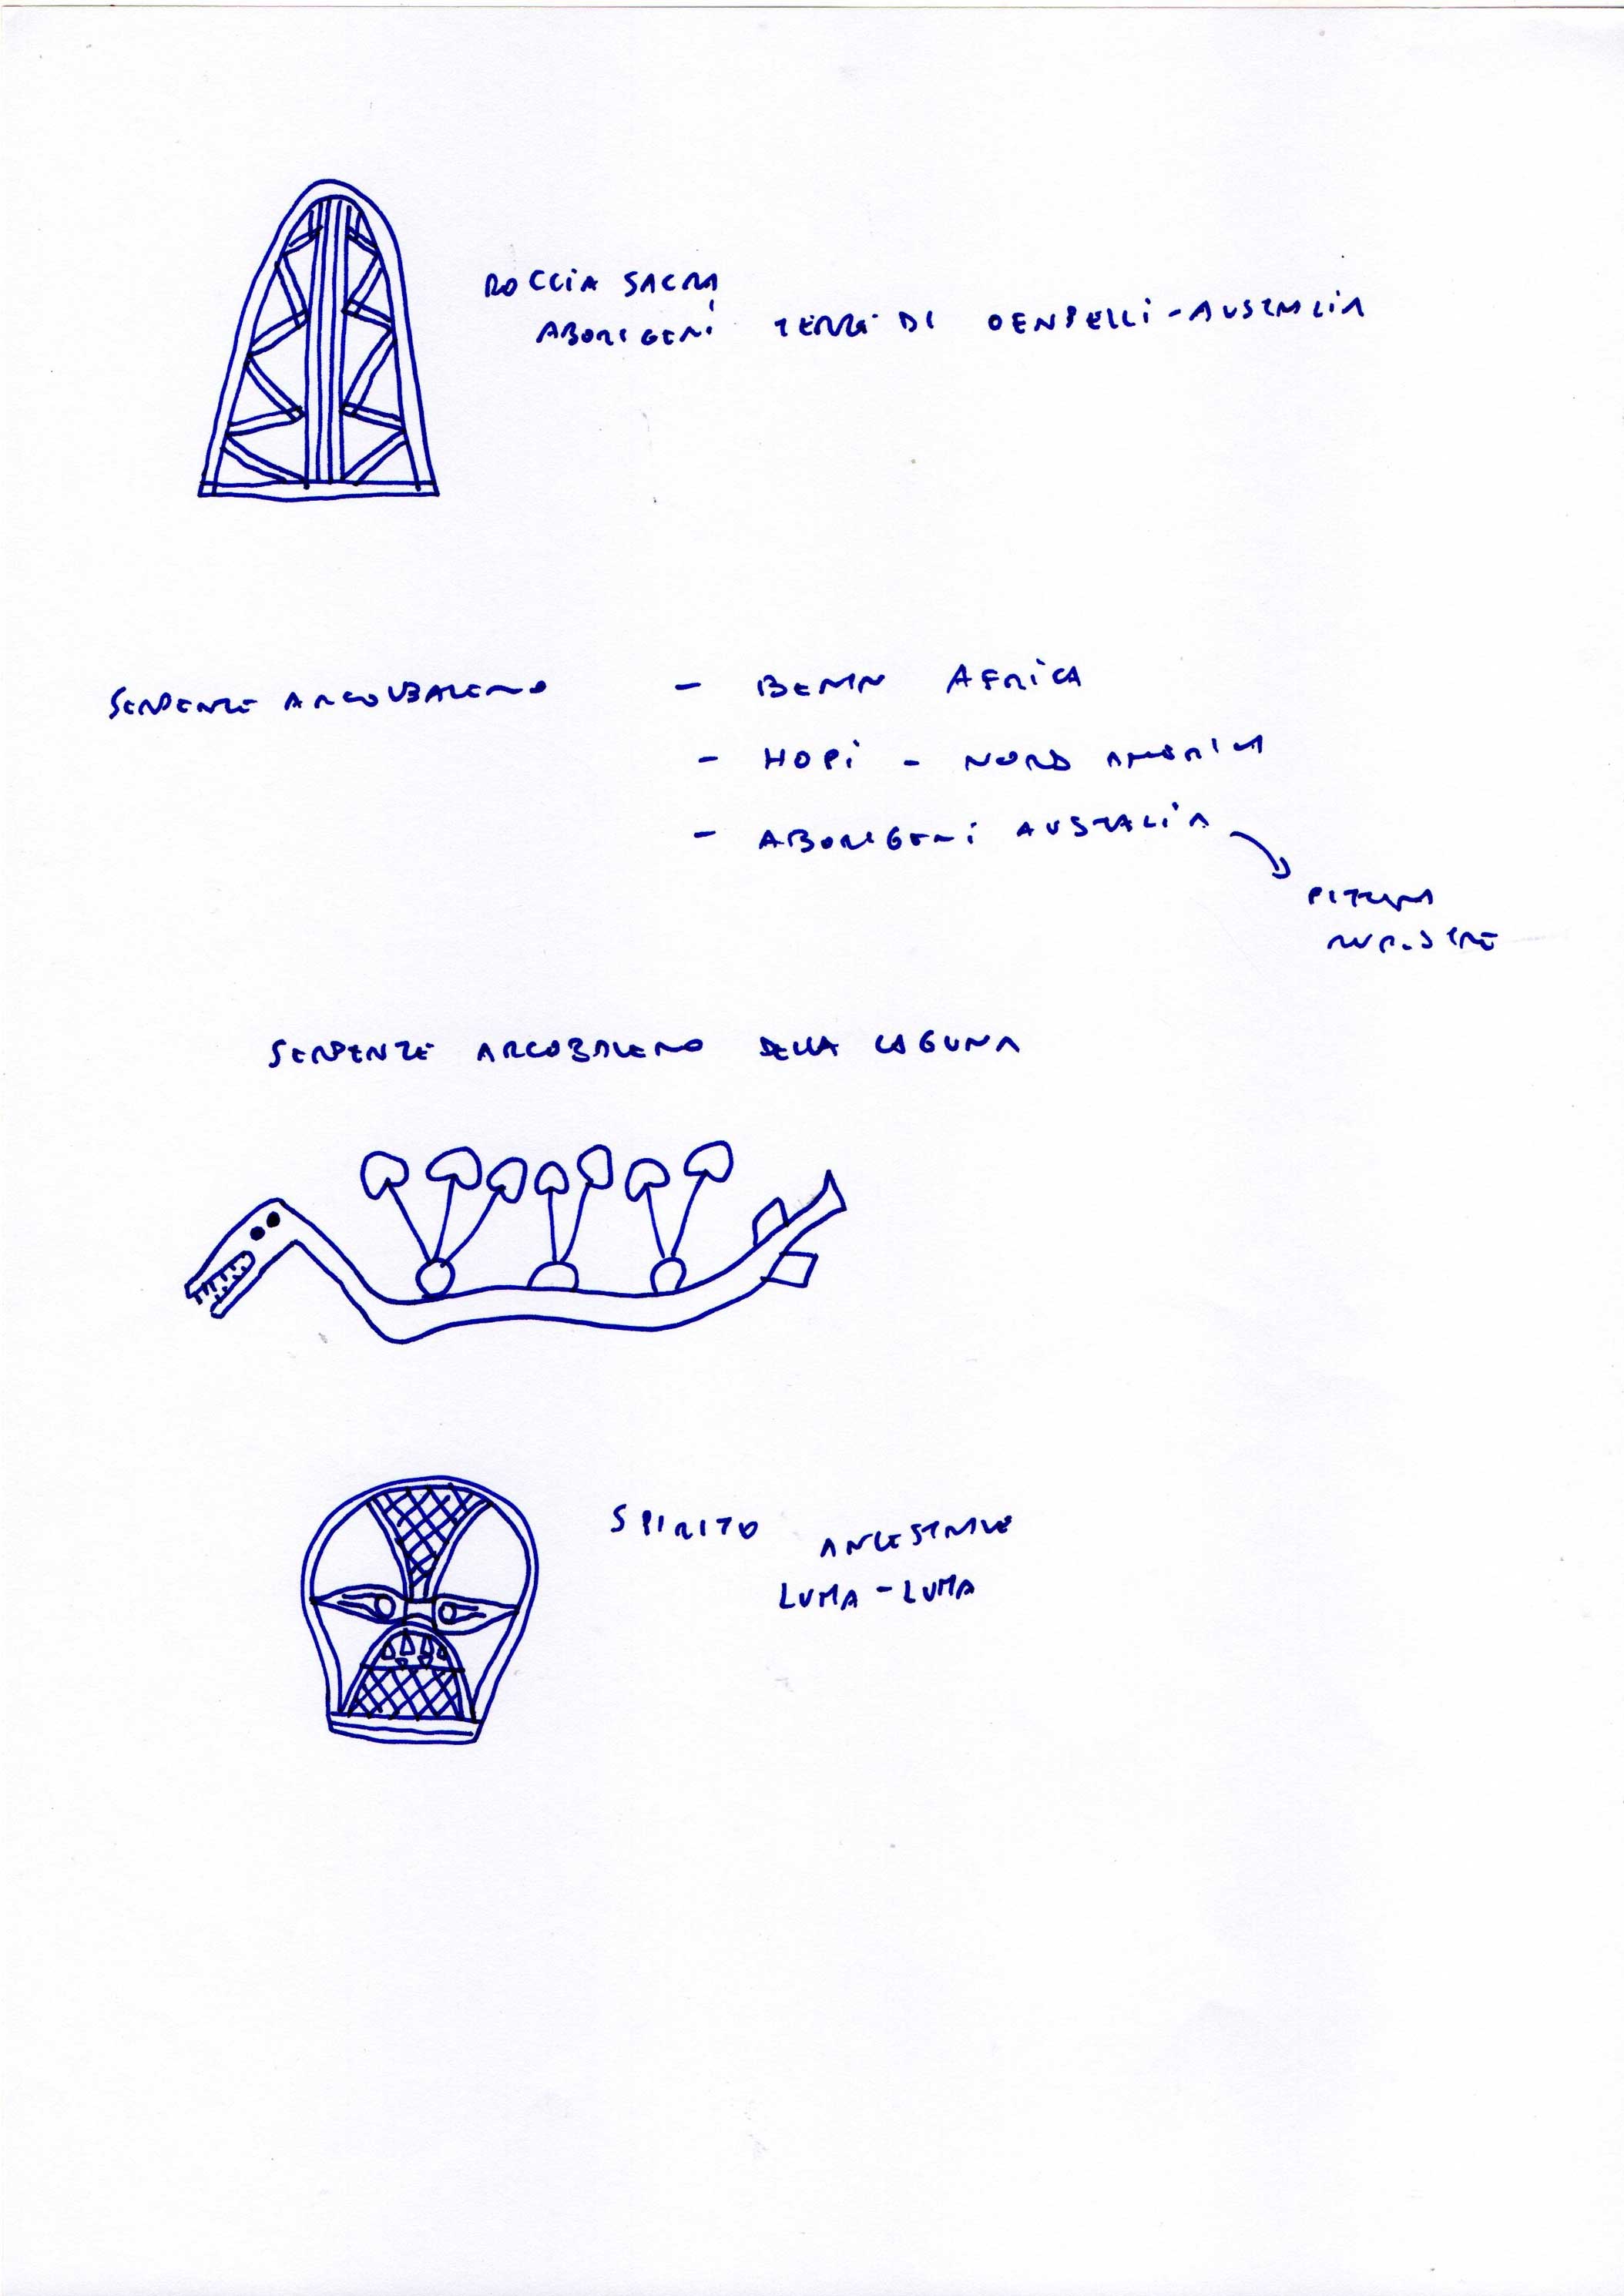 ROCCIA SACRA
ABORIGENI TERRA DI OENPELLI - AUSTRALIA
SERPENTE ARCOUBALENO - BENIN AFRICA
- HOPI - NORD AMERICA
- ABORIGENI AUSTALIA
PITTURA
RUPESTRE
SERPENTE ARCOBALENO DELLA LAGUNA
SPIRITO ANCESTRALE
LUMA - LUMA